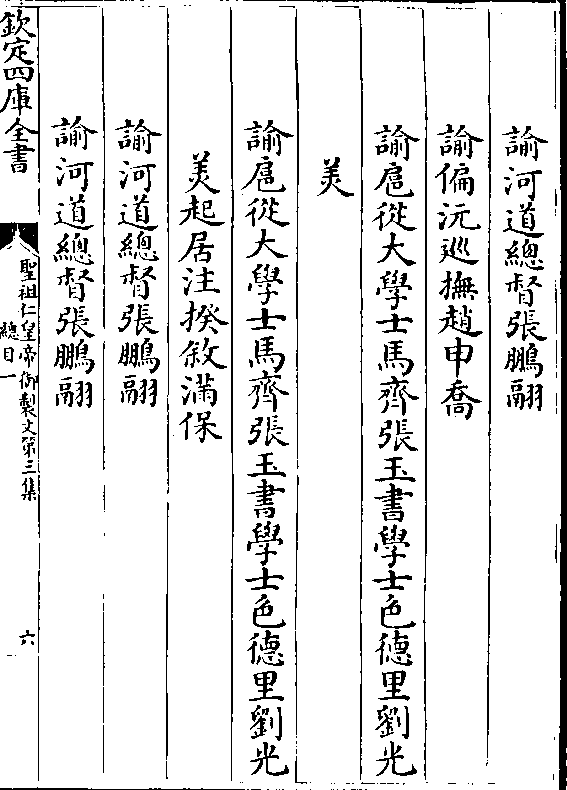 諭河道總督張鵬翮
諭偏沅巡撫趙申喬
諭扈從大學士馬齊張玉書學士色德里劉光
美
諭扈從大學士馬齊張玉書學士色德里劉光
美起居注揆敘滿保
諭河道總督張鵬翮
諭河道總督張鵬翮
欽定四庫全書
聖祖仁皇帝御製文第三集
總目一
六